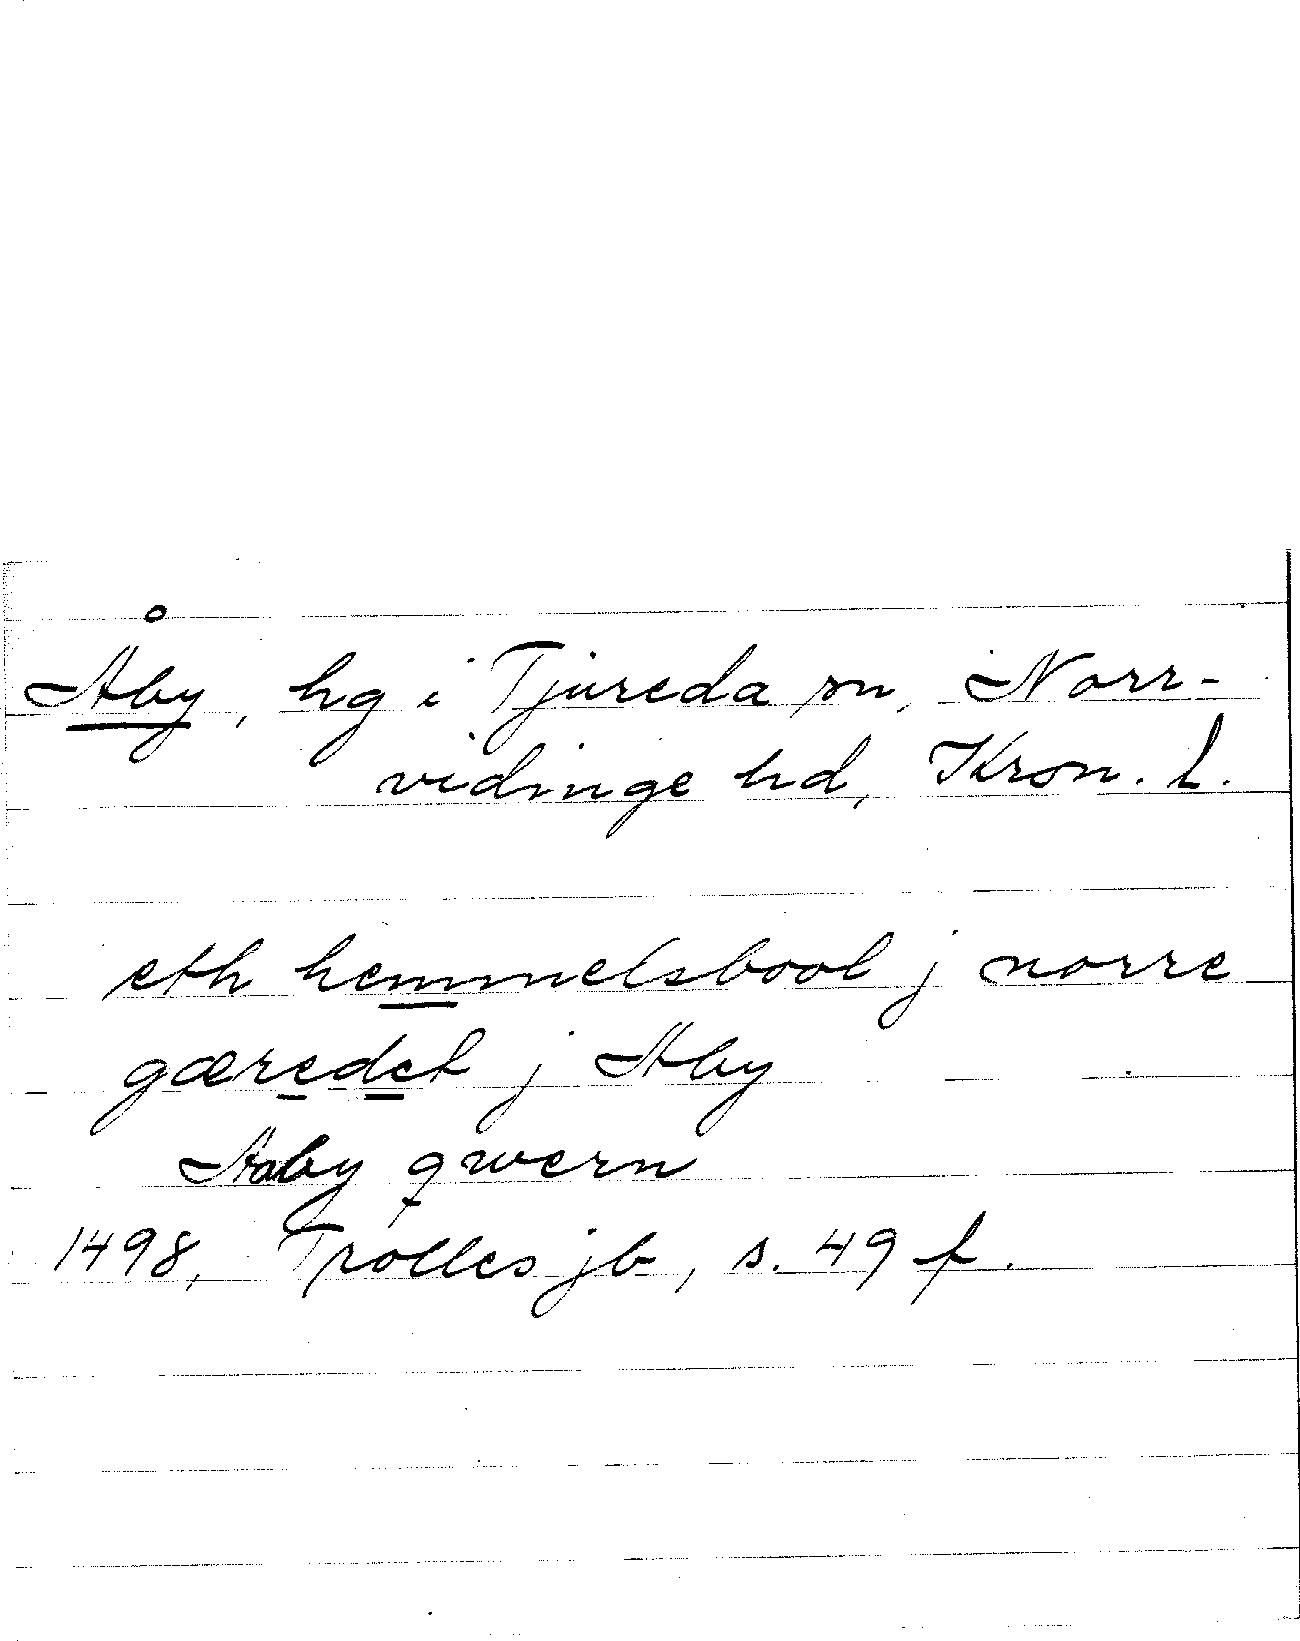 Åby, hg i Tjureda sn, Norr-
vidinge hd, Kron. l.
eth hemmelsbool j norre
gæredet j Aby
Aaby qwern
1498, Trolles jb, s. 49 f.